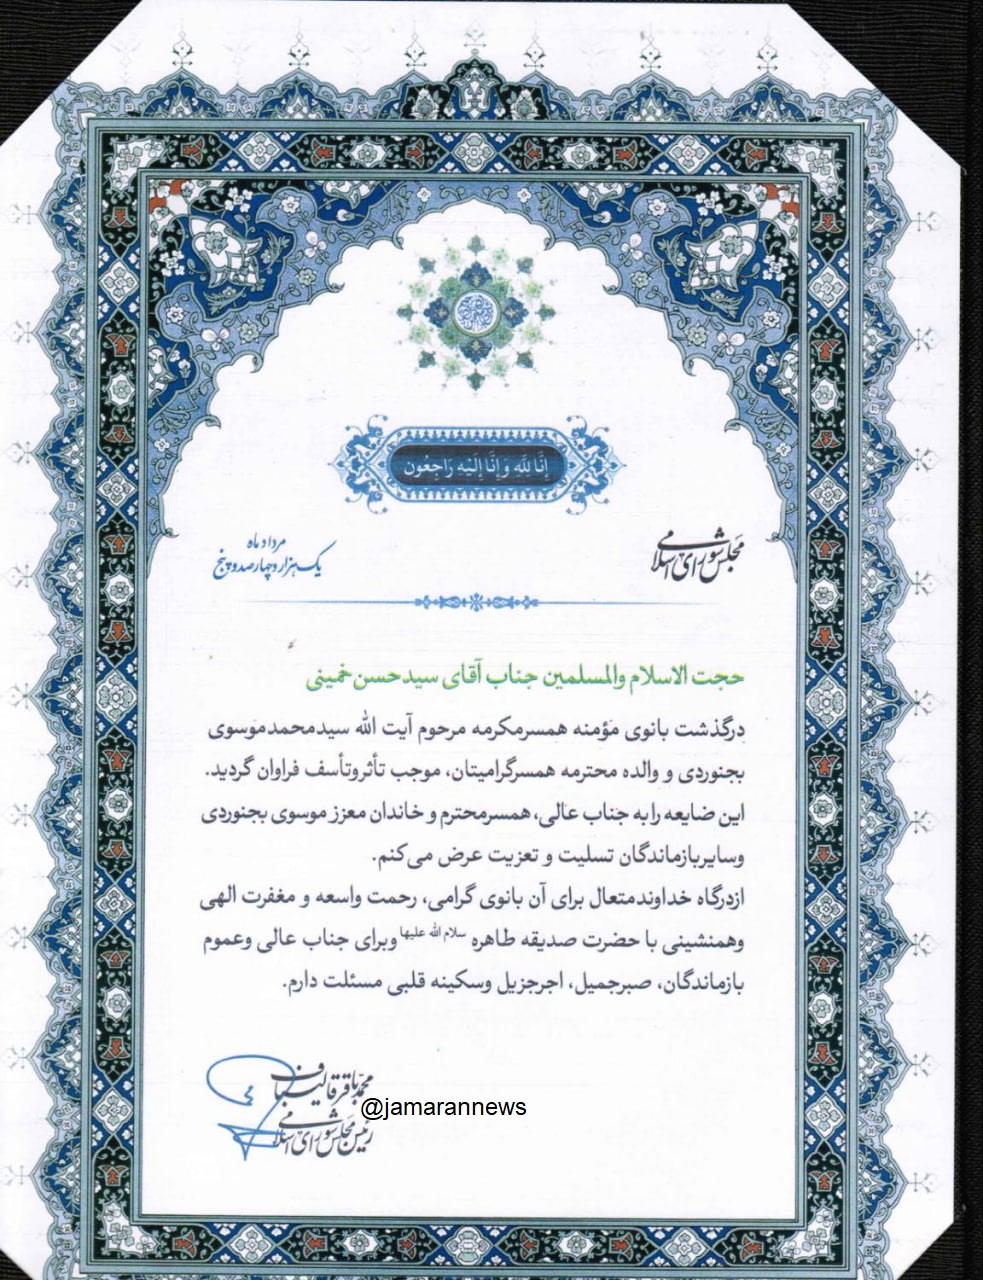 إنا لله وإنا إليه راجعون
مجلس شورای اسلامی
مرداد ماه
یک هزار و چهارصد و پنج
حجت الاسلام والمسلمین جناب آقای سید حسن خمینی
درگذشت بانوی مؤمنه همسر مکرمه مرحوم آیت الله سید محمد موسوی
بجنوردی و والده محترمه همسر گرامیتان، موجب تأثر و تأسف فراوان گردید.
این ضایعه را به جناب عالی، همسر محترم و خاندان معزز موسوی بجنوردی
و سایر بازماندگان تسلیت و تعزیت عرض می‌کنم.
از درگاه خداوند متعال برای آن بانوی گرامی، رحمت واسعه و مغفرت الهی
و همنشینی با حضرت صدیقه طاهره سلام الله علیها و برای جناب عالی و عموم
بازماندگان، صبر جمیل، اجر جزیل و سکینه قلبی مسئلت دارم.
محمد باقر قالیباف
@jamarannews
رئیس مجلس شورای اسلامی